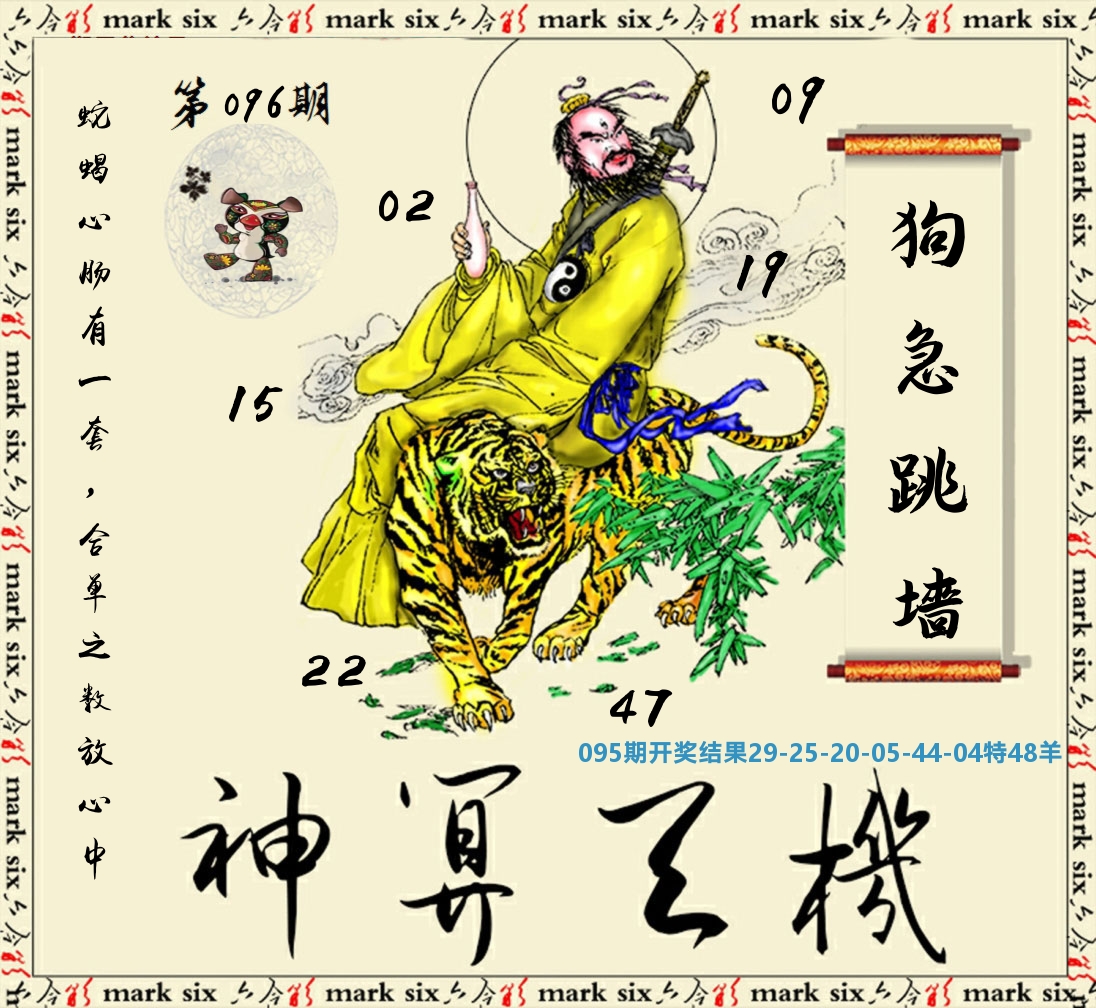 mark six mark six mark six mark six mark six
第096期
蛇蝎心肠有一套，合单之数放心中
09
02
19
15
狗急跳墙
22
47
095期开奖结果29-25-20-05-44-04特48羊
神算天機
mark six mark six mark six mark six
mark six mark six mark six mark six
mark six mark six mark six mark six mark six